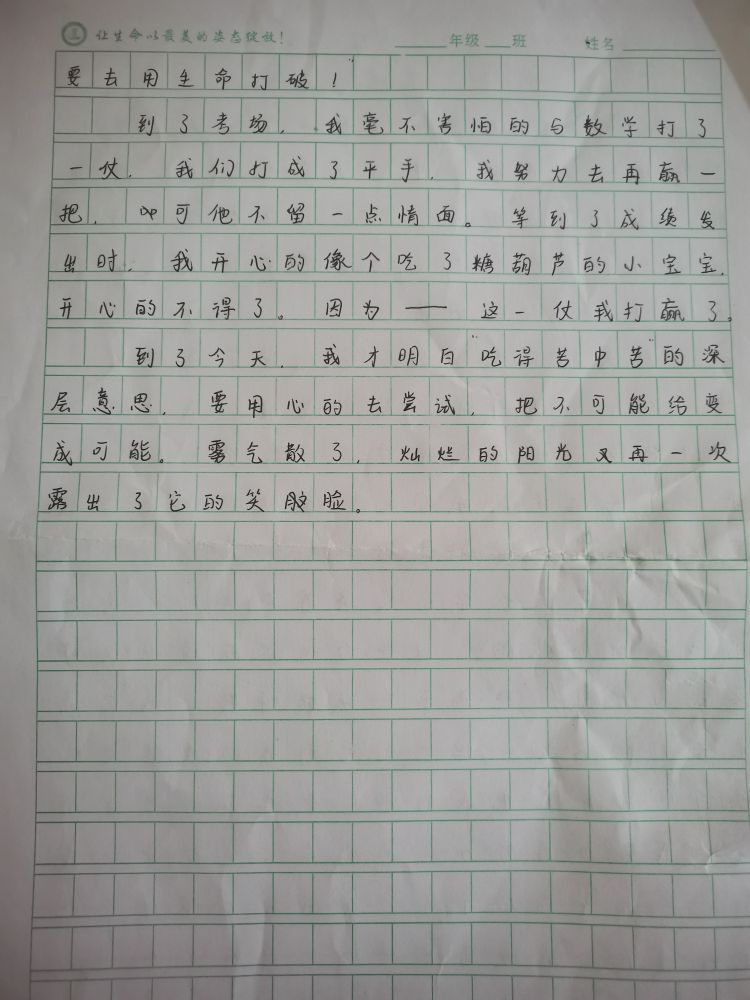 让生命以最美的姿态绽放！ ______年级___班 姓名__________
要去用生命打破！"
到了考场，我毫不害怕的与数学打了
一仗，我们打成了平手，我努力去再赢一
把，可他不留一点情面。等到了成绩发
出时，我开心的像个吃了糖葫芦的小宝宝，
开心的不得了。因为——这一仗我打赢了。
到了今天，我才明白"吃得苦中苦"的深
层意思，要用心的去尝试，把不可能给变
成可能。雾气散了，灿烂的阳光又再一次
露出了它的笑脸。